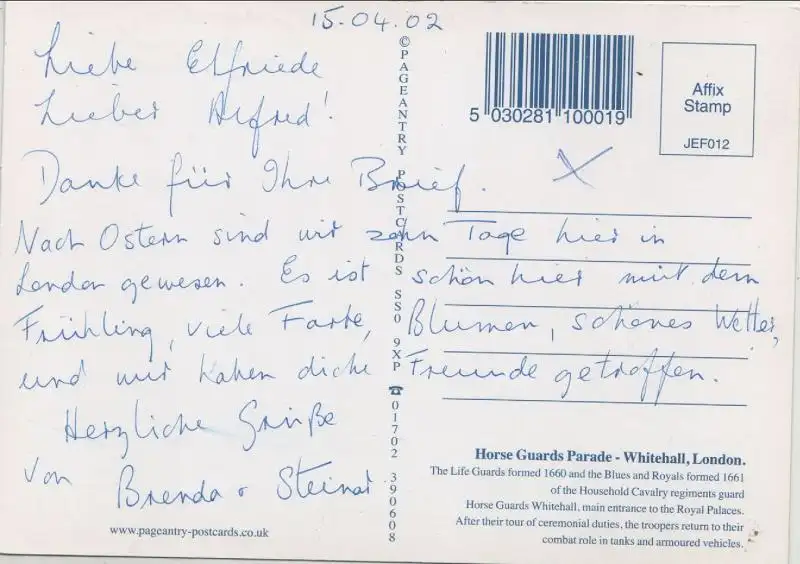 15.04.02
Liebe Elfriede
Lieber Alfred!
Danke für Ihre Brief.
Nach Ostern sind wir zehn Tage hier in
London gewesen. Es ist schön hier mit dem
Frühling, viele Farbe, Blumen, schönes Wetter,
und wir haben Freunde getroffen.
Herzliche Grüße
von Brenda & Steinar
www.pageantry-postcards.co.uk
© PAGEANTRY POSTCARDS SS0 9XP ☎ 01702 390608
5 030281 100019
Affix
Stamp
JEF012
Horse Guards Parade - Whitehall, London.
The Life Guards formed 1660 and the Blues and Royals formed 1661
of the Household Cavalry regiments guard
Horse Guards Whitehall, main entrance to the Royal Palaces.
After their tour of ceremonial duties, the troopers return to their
combat role in tanks and armoured vehicles.